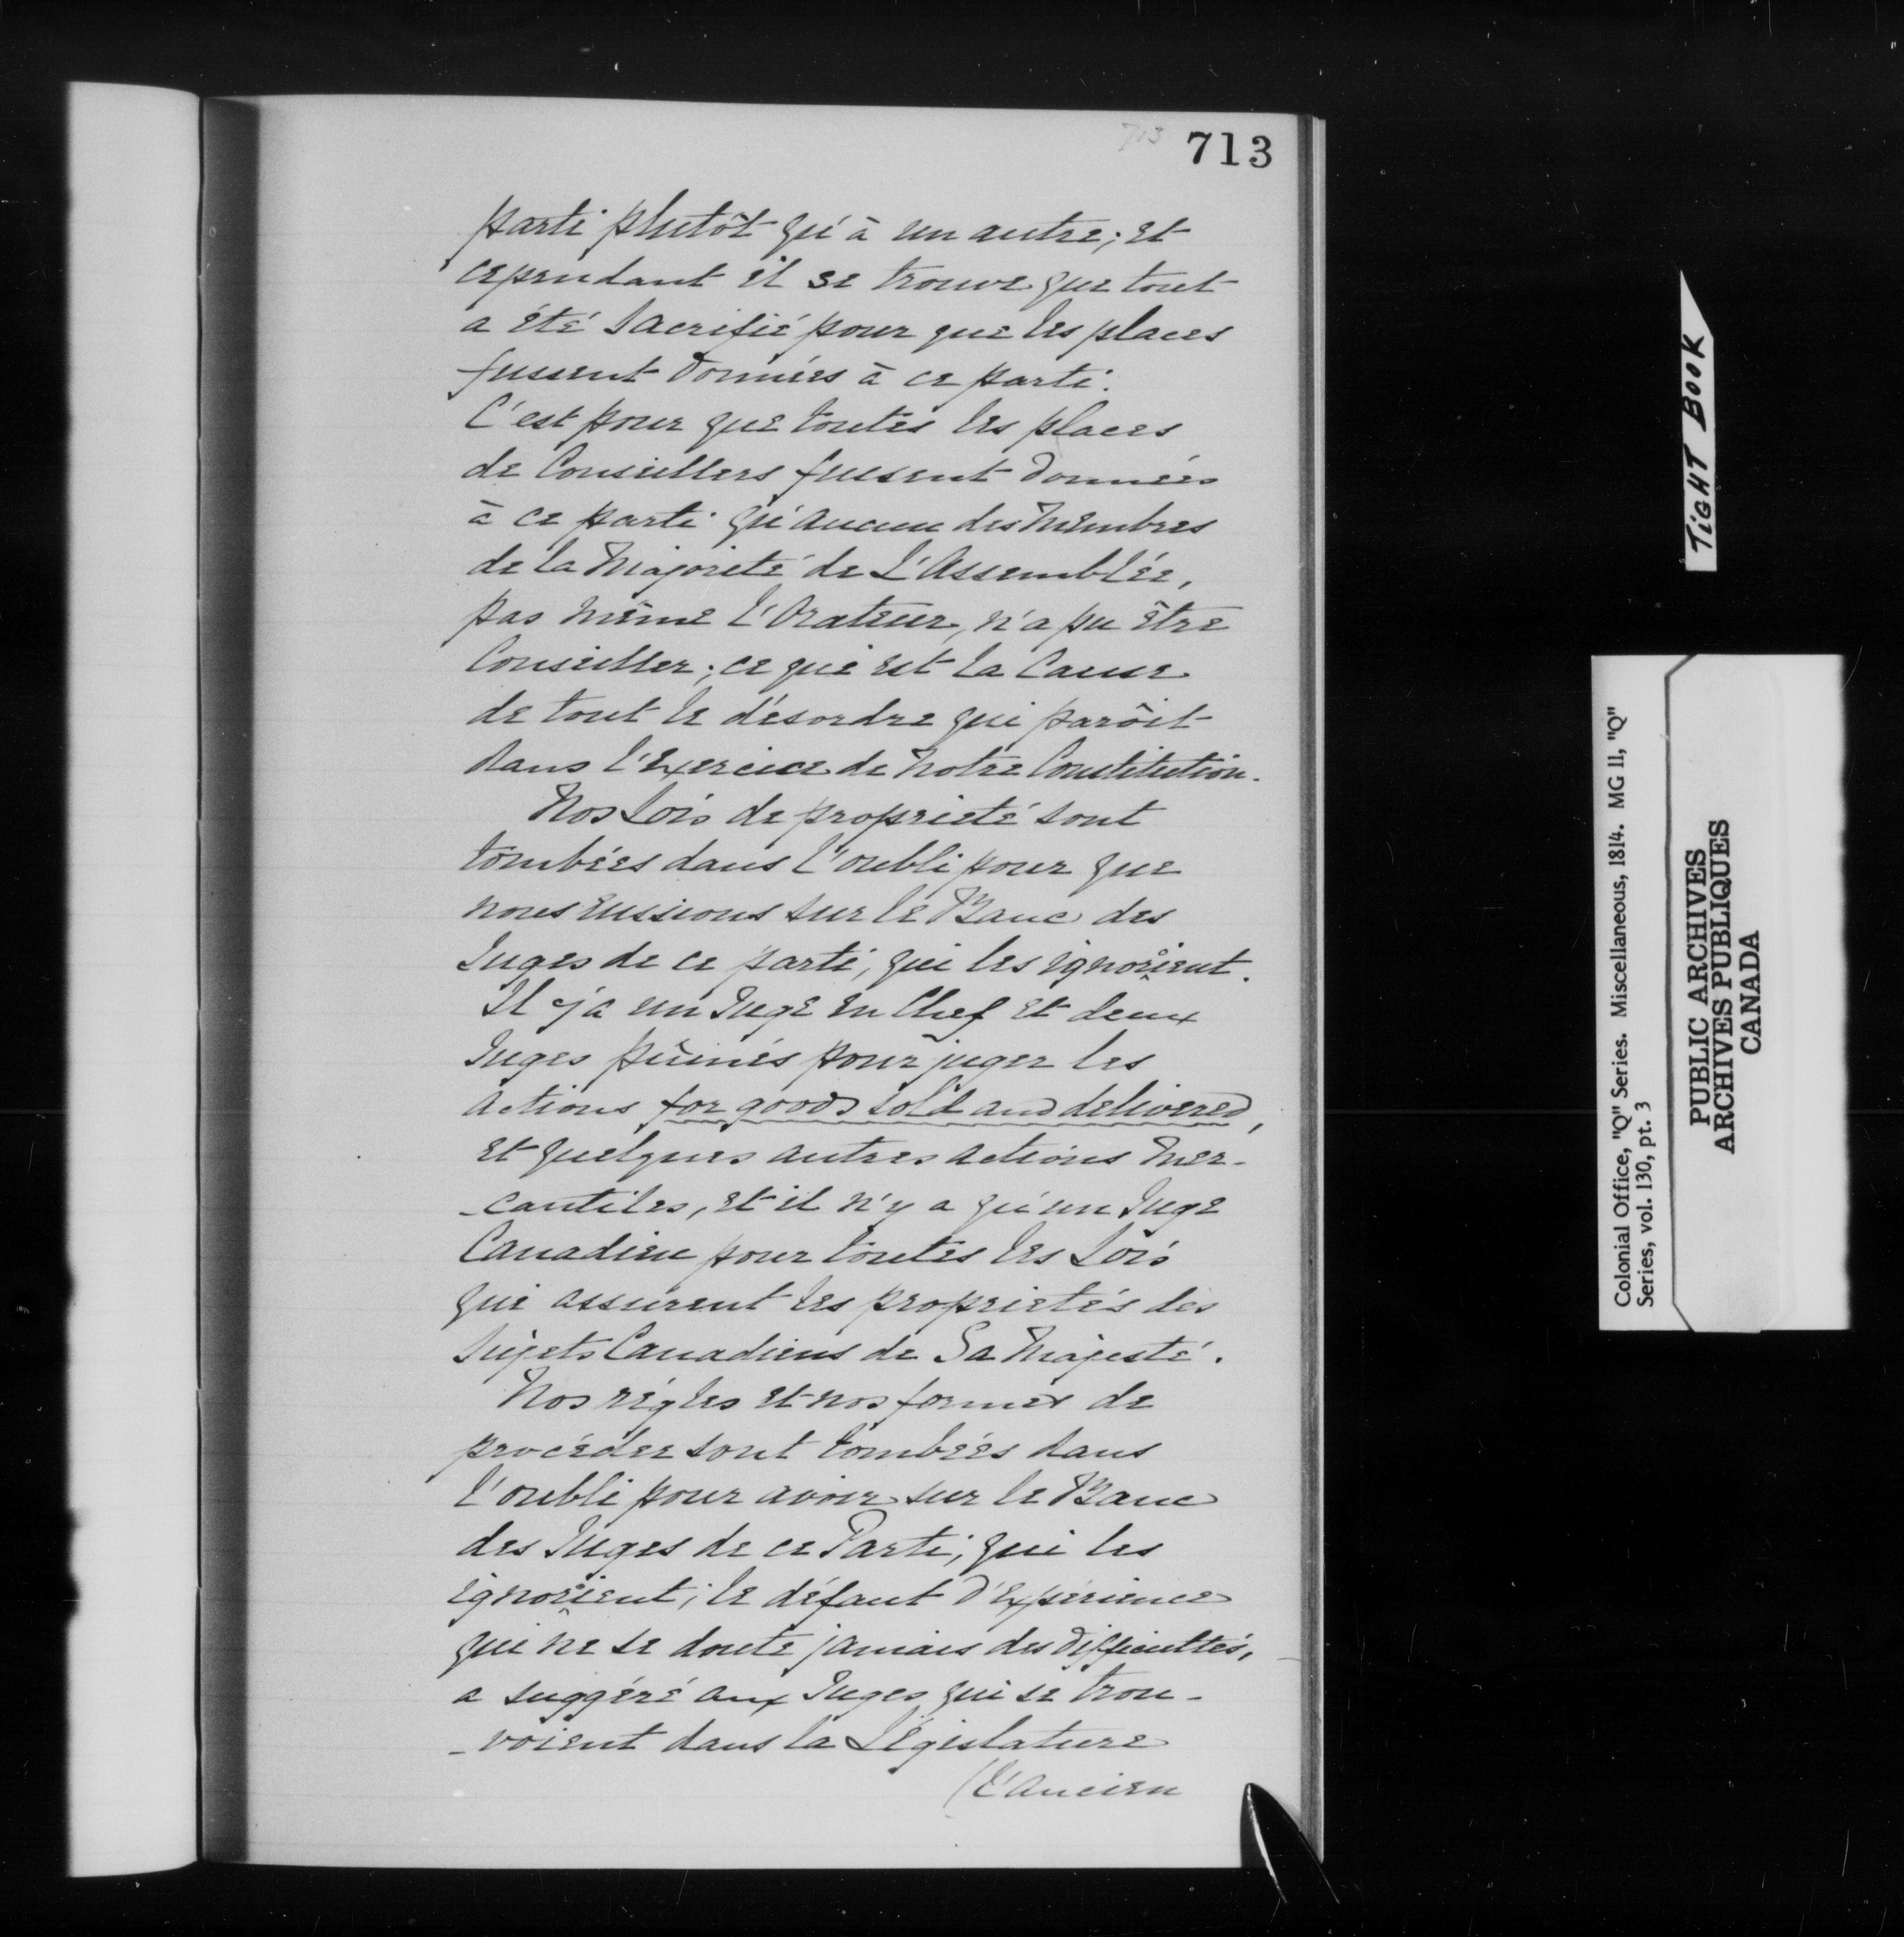 713 713
parti plutôt qu'à un autre; et
cependant il se trouve que tout
a été sacrifié pour que les places
fussent données à ce parti.
C'est pour que toutes les places
de Conseillers fussent données
à ce parti qu'aucun des Membres
de la Majorité de L'Assemblée,
pas même l'Orateur, n'a pu être
Conseiller; ce qui est la Cause
de tout le désordre qui parôit
dans l'Exercice de Notre Constitution.
Nos Lois de proprieté sont
tombées dans l'oubli pour que
nous eussions sur le Banc des
Juges de ce parti, qui les ignoroient.
Il y a un Juge en Chef et deux
Juges puînés pour juger les
actions for goods sold and delivered,
et quelques autres actions Mer-
-cantiles, et il n'y a qu'un Juge
Canadien pour toutes les Lois
qui assurent les proprietés des
Sujets Canadiens de Sa Majesté.
Nos régles et nos formes de
procéder sont tombées dans
l'oubli pour avoir sur le Banc
des Juges de ce Parti, qui les
ignoroient; le défaut d'Expérience
qui ne se doute jamais des difficultés,
a suggéré aux Juges qui se trou-
-voient dans la Législature
(l'Ancien
TIGHT BOOK
Colonial Office, "Q" Series. Miscellaneous, 1814. MG 11, "Q"
Series, vol. 130, pt. 3
PUBLIC ARCHIVES
ARCHIVES PUBLIQUES
CANADA